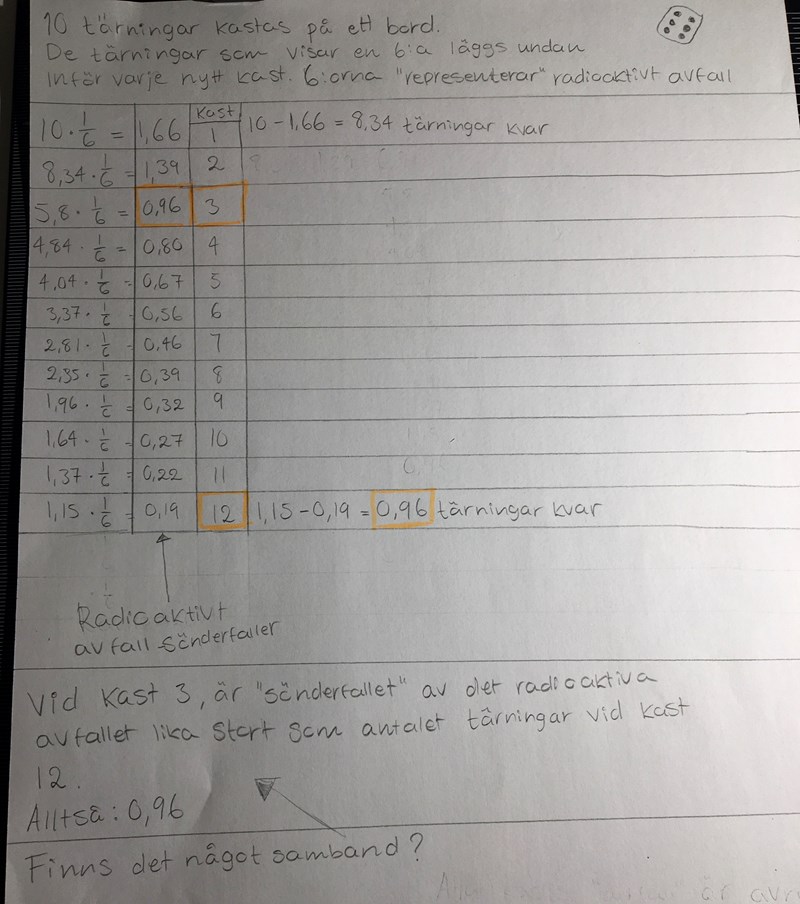 10 tärningar kastas på ett bord.
De tärningar som visar en 6:a läggs undan
Inför varje nytt kast. 6:orna "representerar" radioaktivt avfall
Kast
10 · 1/6 = 1,66 1 10 - 1,66 = 8,34 tärningar kvar
8,34 · 1/6 = 1,39 2
5,8 · 1/6 = 0,96 3
4,84 · 1/6 = 0,80 4
4,04 · 1/6 = 0,67 5
3,37 · 1/6 = 0,56 6
2,81 · 1/6 = 0,46 7
2,35 · 1/6 = 0,39 8
1,96 · 1/6 = 0,32 9
1,64 · 1/6 = 0,27 10
1,37 · 1/6 = 0,22 11
1,15 · 1/6 = 0,19 12 1,15 - 0,19 = 0,96 tärningar kvar
Radioaktivt
avfall sönderfaller
Vid kast 3, är "sönderfallet" av det radioaktiva
avfallet lika stort som antalet tärningar vid kast
12.
Alltså: 0,96
Finns det något samband?